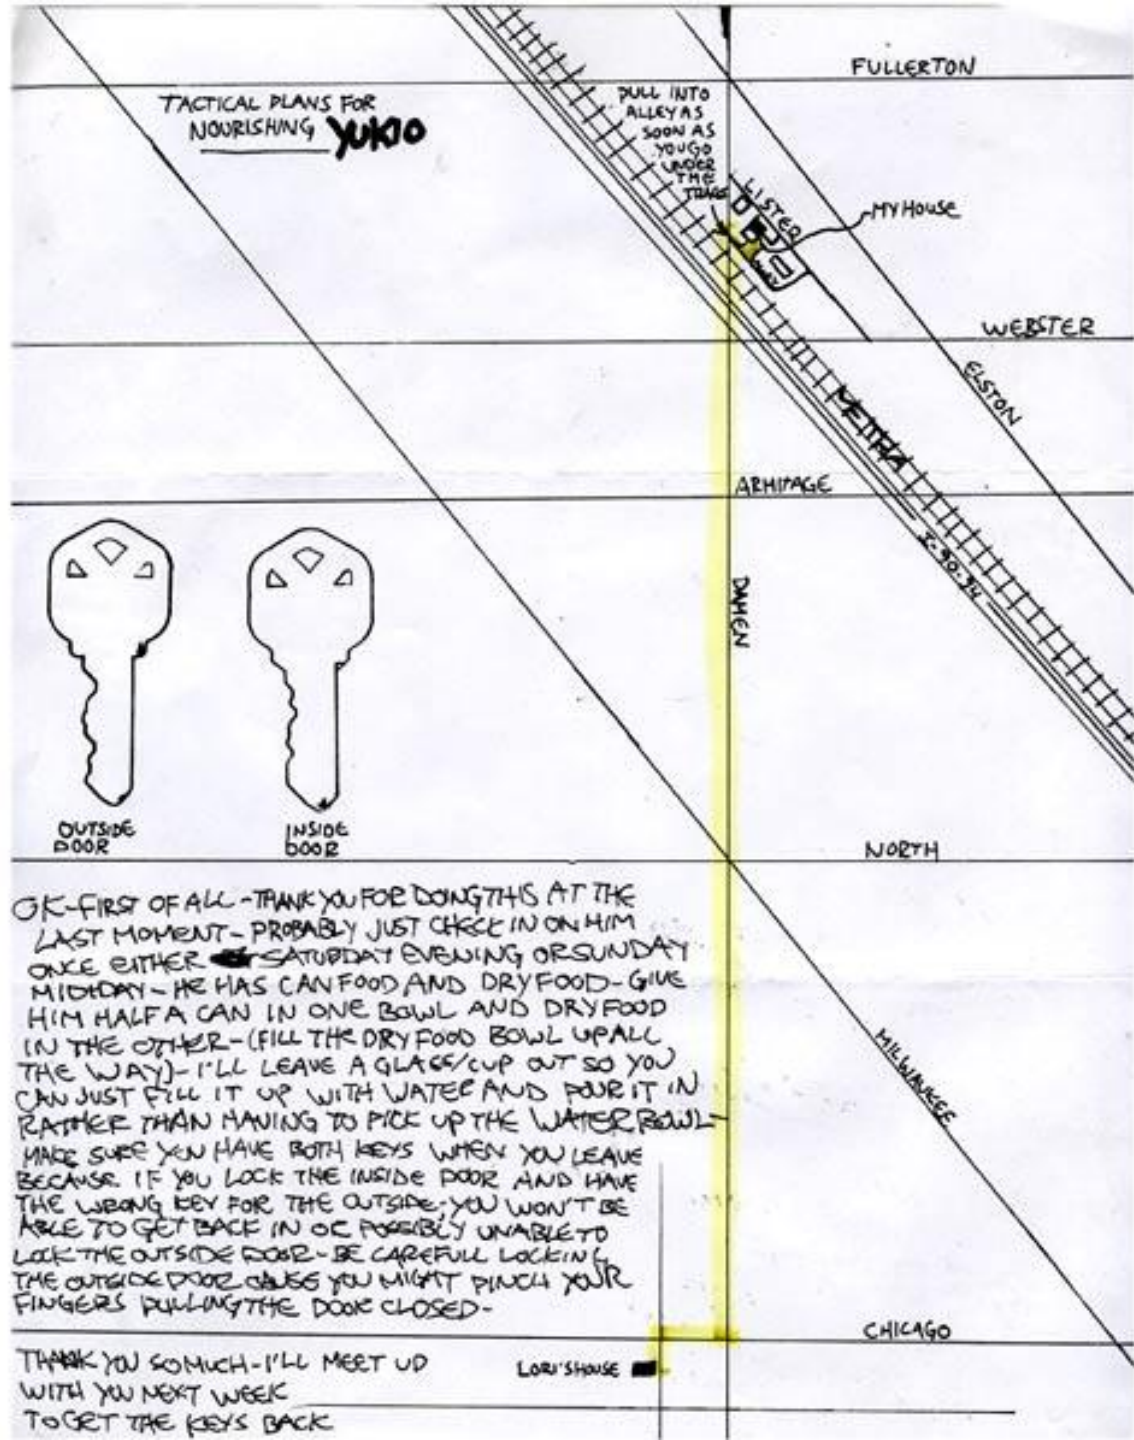 FULLERTON
TACTICAL PLANS FOR
NOURISHING YUKIO
PULL INTO
ALLEY AS
SOON AS
YOU GO
UNDER
THE
TRACKS
LISTER
MY HOUSE
WEBSTER
ELSTON
METRA
ARMITAGE
I-90-94
DAMEN
OUTSIDE
DOOR
INSIDE
DOOR
NORTH
OK-FIRST OF ALL-THANK YOU FOR DOING THIS AT THE
LAST MOMENT-PROBABLY JUST CHECK IN ON HIM
ONCE EITHER SATURDAY EVENING OR SUNDAY
MIDDAY-HE HAS CAN FOOD AND DRY FOOD-GIVE
HIM HALF A CAN IN ONE BOWL AND DRY FOOD
IN THE OTHER-(FILL THE DRY FOOD BOWL UP ALL
THE WAY)-I'LL LEAVE A GLASS/CUP OUT SO YOU
CAN JUST FILL IT UP WITH WATER AND POUR IT IN
RATHER THAN HAVING TO PICK UP THE WATER BOWL-
MAKE SURE YOU HAVE BOTH KEYS WHEN YOU LEAVE
BECAUSE IF YOU LOCK THE INSIDE DOOR AND HAVE
THE WRONG KEY FOR THE OUTSIDE-YOU WON'T BE
ABLE TO GET BACK IN OR POSSIBLY UNABLE TO
LOCK THE OUTSIDE DOOR-BE CAREFULL LOCKING
THE OUTSIDE DOOR CAUSE YOU MIGHT PINCH YOUR
FINGERS PULLING THE DOOR CLOSED-
MILWAUKEE
CHICAGO
LORI'S HOUSE
THANK YOU SO MUCH-I'LL MEET UP
WITH YOU NEXT WEEK
TO GET THE KEYS BACK